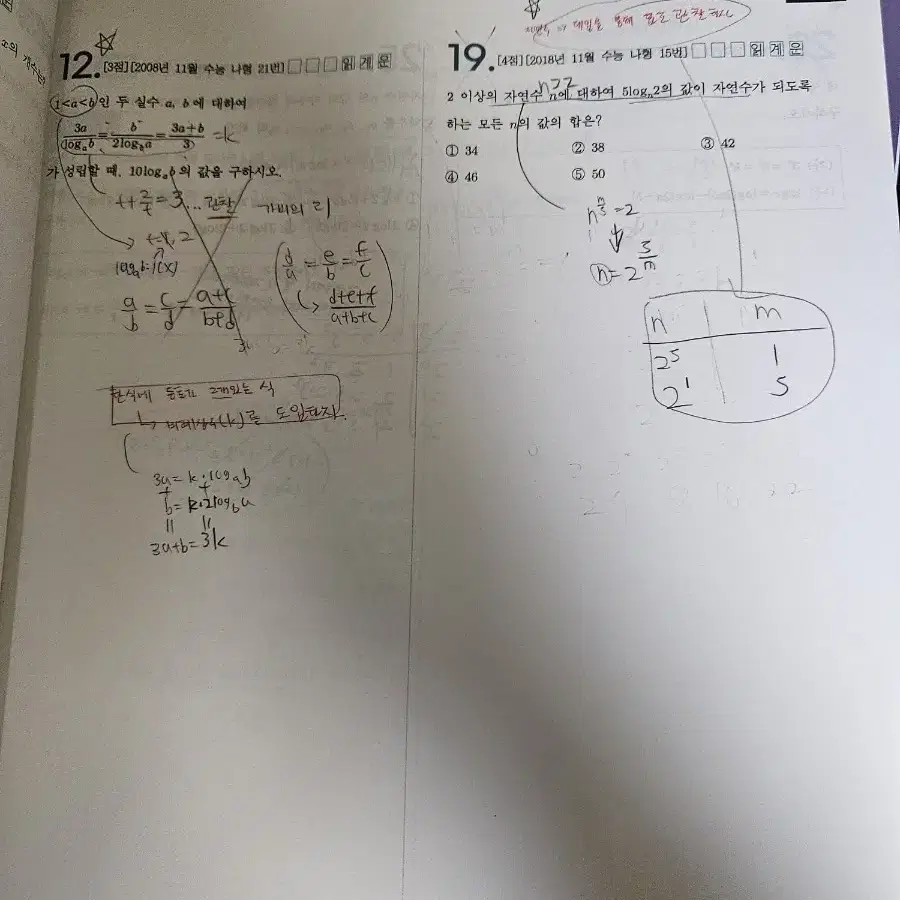 12. [3점][2008년 11월 수능 나형 21번] □□□ 읽 계 운
1<a<b인 두 실수 a, b에 대하여
3a/log_a b = b/2log_b a = (3a+b)/3 =k
가 성립할 때, 10log_a b의 값을 구하시오.
t+2/t=3 ... 관찰 가비의 리
2
a/b = c/d = (a+c)/(b+d)
d/a = e/b = f/c
(d+e+f)/(a+b+c)
한식에 등호가 2개있는 식
비례상수(k)를 도입하자.
3a=k·log_a b
+ +
b=k·2log_b a
|| ||
3a+b=3k
관찰하자
19. [4점][2018년 11월 수능 나형 15번] □□□ 읽 계 운
n≥2
2 이상의 자연수 n에 대하여 5log_n 2의 값이 자연수가 되도록
하는 모든 n의 값의 합은?
① 34 ② 38 ③ 42
④ 46 ⑤ 50
n^(m/5)=2
n=2^(5/m)
n m
2^5 1
2^1 5